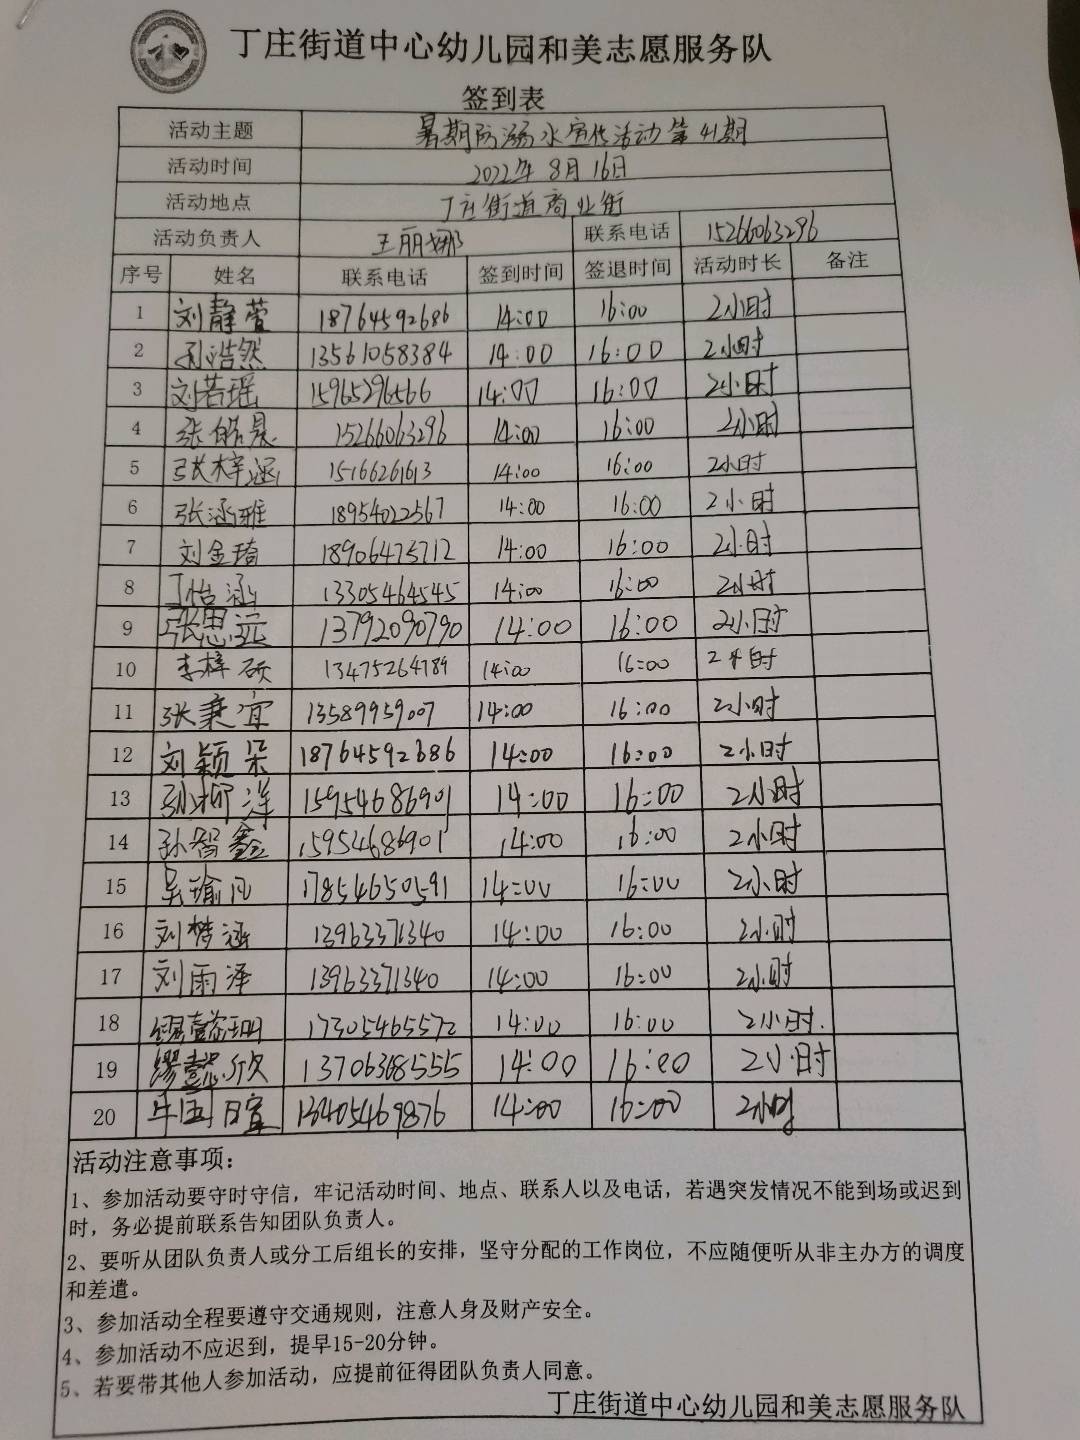 丁庄街道中心幼儿园和美志愿服务队
签到表
活动主题 暑期防溺水宣传活动第41期
活动时间 2022年8月16日
活动地点 丁庄街道商业街
活动负责人 王丽娜 联系电话 15266063296
序号 姓名 联系电话 签到时间 签退时间 活动时长 备注
1 刘静萱 18764592686 14:00 16:00 2小时
2 孙浩然 13561058384 14:00 16:00 2小时
3 刘若瑶 15965296566 14:00 16:00 2小时
4 张皓晨 15266063296 14:00 16:00 2小时
5 张梓涵 15166261613 14:00 16:00 2小时
6 张涵雅 18954022567 14:00 16:00 2小时
7 刘金琦 18906475712 14:00 16:00 2小时
8 丁怡涵 13305464545 14:00 16:00 2小时
9 张思远 13792090790 14:00 16:00 2小时
10 李梓硕 13475264789 14:00 16:00 2小时
11 张秉宜 13589959007 14:00 16:00 2小时
12 刘颖朵 18764592686 14:00 16:00 2小时
13 孙柳洋 15954686901 14:00 16:00 2小时
14 孙智鑫 15954686901 14:00 16:00 2小时
15 吴瑜凡 17854650591 14:00 16:00 2小时
16 刘梦涵 13963371340 14:00 16:00 2小时
17 刘雨泽 13963371340 14:00 16:00 2小时
18 缪懿珊 17305465572 14:00 16:00 2小时.
19 缪懿欣 13706368555 14:00 16:00 2小时
20 13405469876 14:00 16:00 2小时
活动注意事项：
1、参加活动要守时守信，牢记活动时间、地点、联系人以及电话，若遇突发情况不能到场或迟到
时，务必提前联系告知团队负责人。
2、要听从团队负责人或分工后组长的安排，坚守分配的工作岗位，不应随便听从非主办方的调度
和差遣。
3、参加活动全程要遵守交通规则，注意人身及财产安全。
4、参加活动不应迟到，提早15-20分钟。
5、若要带其他人参加活动，应提前征得团队负责人同意。
丁庄街道中心幼儿园和美志愿服务队